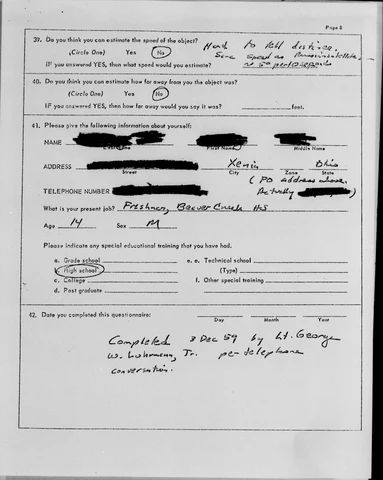 Page 8
39. Do you think you can estimate the speed of the object?
Hard to tell distance,
(Circle One) Yes No
Same speed as
IF you answered YES, then what speed would you estimate?
40. Do you think you can estimate how far away from you the object was?
(Circle One) Yes No
IF you answered YES, then how far away would you say it was? feet.
41. Please give the following information about yourself:
NAME
First Name Middle Name
ADDRESS Xenia Ohio
Street City Zone State
(PO Address above.
TELEPHONE NUMBER Actually
What is your present job? Freshman, Beaver Creek HS
Age 14 Sex M
Please indicate any special educational training that you have had.
a. Grade school e. e. Technical school
b. High school (Type)
c. College f. Other special training
d. Post graduate
42. Date you completed this questionnaire:
Day Month Year
Completed 3 Dec 59 by Lt. George
W. Jr. per telephone
conversation.